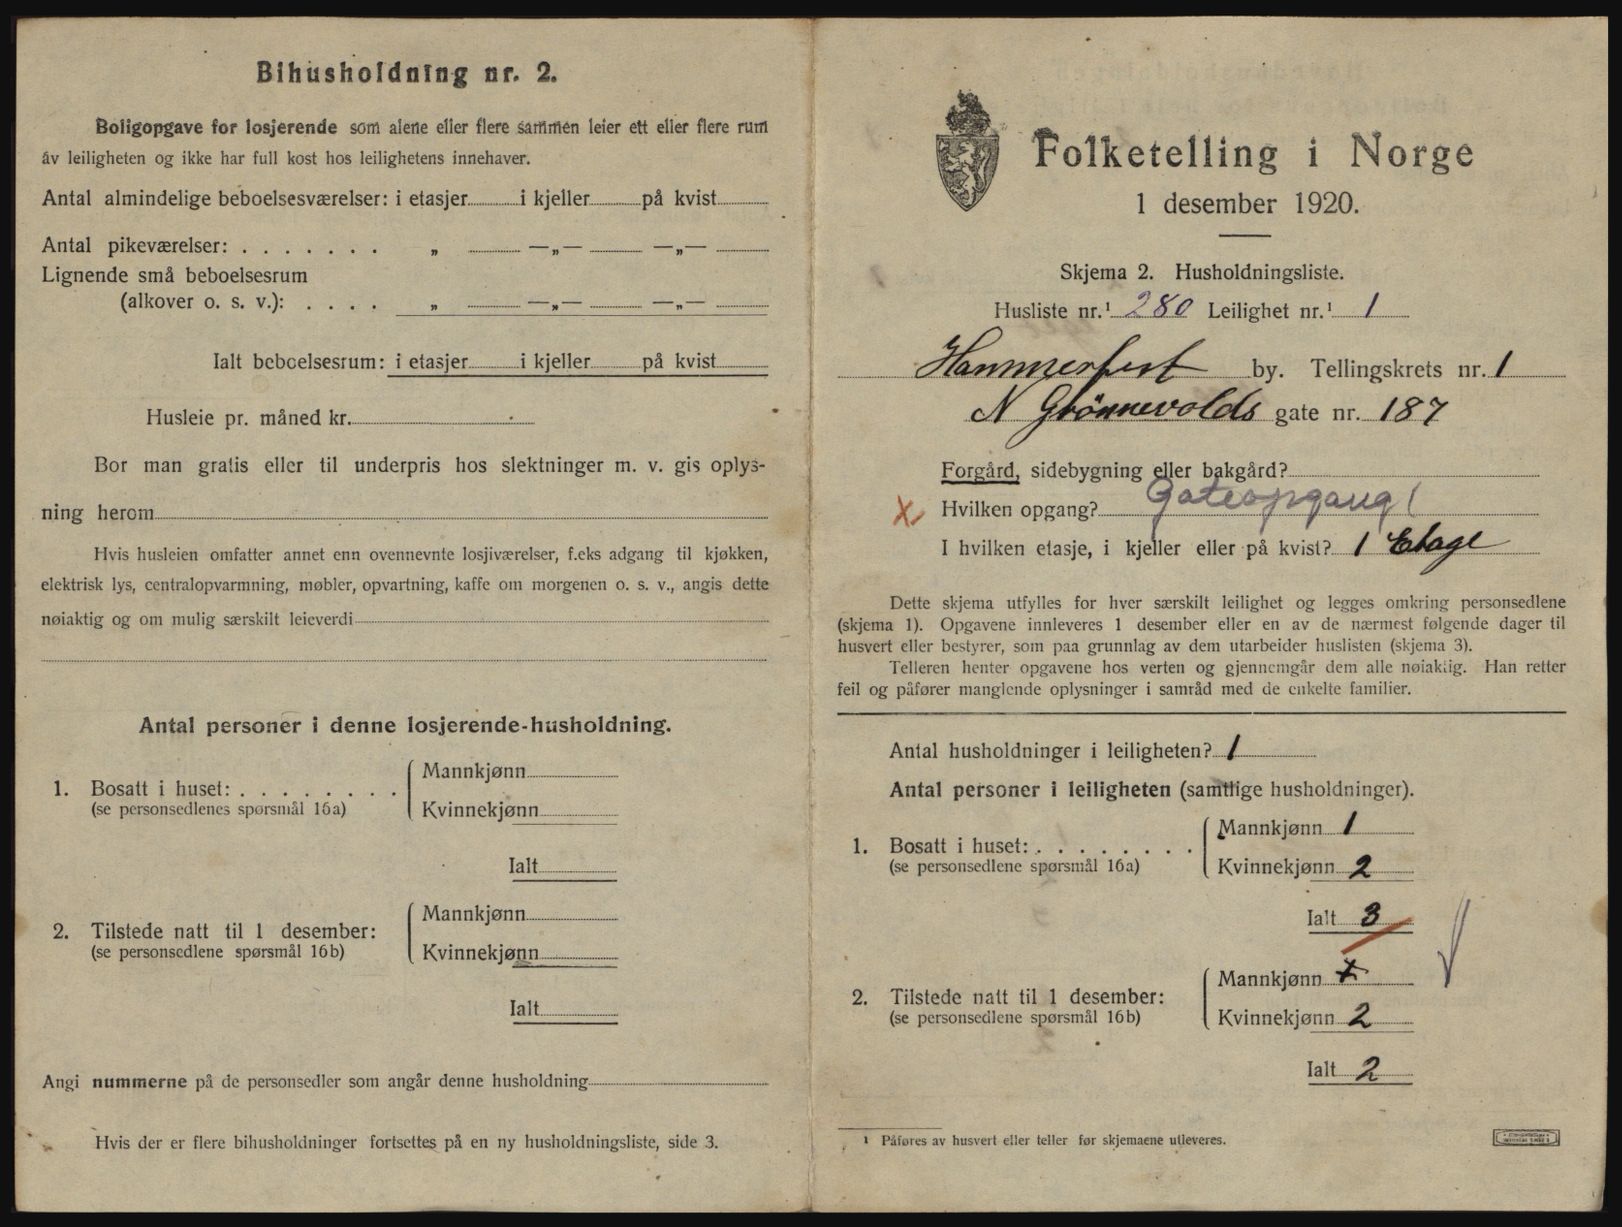 Bihusholdning nr. 2.
Boligopgave for losjerende som alene eller flere sammen leier ett eller flere rum
av leiligheten og ikke har full kost hos leilighetens innehaver.
Antal almindelige beboelsesværelser: i etasjer i kjeller på kvist
Antal pikeværelser: . . . . . . . „ —„— —„—
Lignende små beboelsesrum
(alkover o. s. v.): . . . . „ —„— —„—
Ialt beboelsesrum: i etasjer i kjeller på kvist
Husleie pr. måned kr.
Bor man gratis eller til underpris hos slektninger m. v. gis oplys-
ning herom
Hvis husleien omfatter annet enn ovennevnte losjiværelser, f.eks adgang til kjøkken,
elektrisk lys, centralopvarmning, møbler, opvartning, kaffe om morgenen o. s. v., angis dette
nøiaktig og om mulig særskilt leieverdi
Antal personer i denne losjerende-husholdning.
1. Bosatt i huset: . . . . . . . .
(se personsedlenes spørsmål 16a)
Mannkjønn
Kvinnekjønn
Ialt
2. Tilstede natt til 1 desember:
(se personsedlene spørsmål 16b)
Mannkjønn
Kvinnekjønn
Ialt
Angi nummerne på de personsedler som angår denne husholdning
Hvis der er flere bihusholdninger fortsettes på en ny husholdningsliste, side 3.
Folketelling i Norge
1 desember 1920.
Skjema 2. Husholdningsliste.
Husliste nr.¹ 280 Leilighet nr.¹ 1
Hammerfest by. Tellingskrets nr. 1
N Grönnevolds gate nr. 187
Forgård, sidebygning eller bakgård?
X Hvilken opgang? Gateopgang
I hvilken etasje, i kjeller eller på kvist? 1 Etage
Dette skjema utfylles for hver særskilt leilighet og legges omkring personsedlene
(skjema 1). Opgavene innleveres 1 desember eller en av de nærmest følgende dager til
husvert eller bestyrer, som paa grunnlag av dem utarbeider huslisten (skjema 3).
Telleren henter opgavene hos verten og gjennemgår dem alle nøiaktig. Han retter
feil og påfører manglende oplysninger i samråd med de enkelte familier.
Antal husholdninger i leiligheten? 1
Antal personer i leiligheten (samtlige husholdninger).
1. Bosatt i huset: . . . . . . . .
(se personsedlene spørsmål 16a)
Mannkjønn 1
Kvinnekjønn 2
Ialt 3
2. Tilstede natt til 1 desember:
(se personsedlene spørsmål 16b)
Mannkjønn
Kvinnekjønn 2
Ialt 2
¹ Påføres av husvert eller teller før skjemaene utleveres.